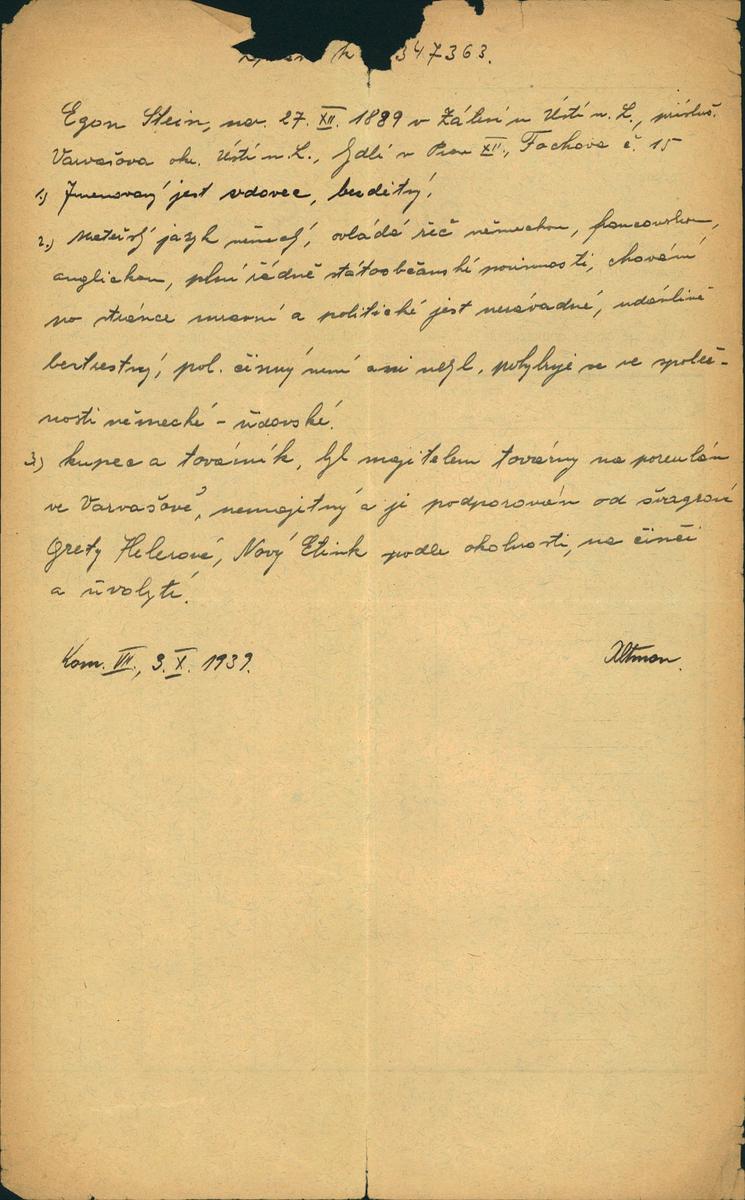 k 347363.
Egon Stein, nar. 27. XII. 1889 v Zálesí u Ústí n. L., přísluš.
Varvašova okr. Ústí n. L., bydlí v Praze XII., Fochova č. 15
1.) Jmenovaný jest vdovec, bezdětný.
2.) Mateřský jazyk německý, ovládá řeč německou, francouzskou,
anglickou, plní řádně státoobčanské povinnosti, chování
po stránce mravní a politické jest nezávadné, udánlivě
beztrestný, pol. činný není ani nebyl, pohybuje se ve společ-
nosti německé - židovské.
3.) kupec a továrník, byl majitelem továrny na porculán
ve Varvašově, nemajetný a je podporován od švagrové
Grety Helerové, Nový Etink podle okolnosti, na činži
a živobytí.
Kom. VII., 3. X. 1939. Altman.